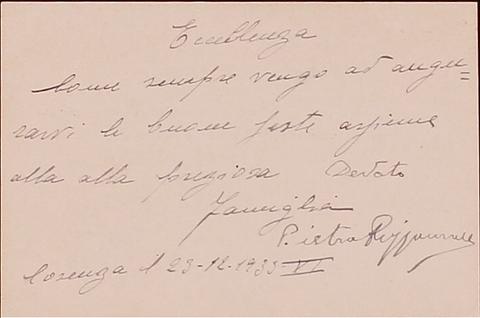 Eccellenza
Come sempre vengo ad augu=
rarvi le buone feste assieme
alla alla preziosa Devoto
Famiglia
Pietro
Cosenza 23-12-1933-VI